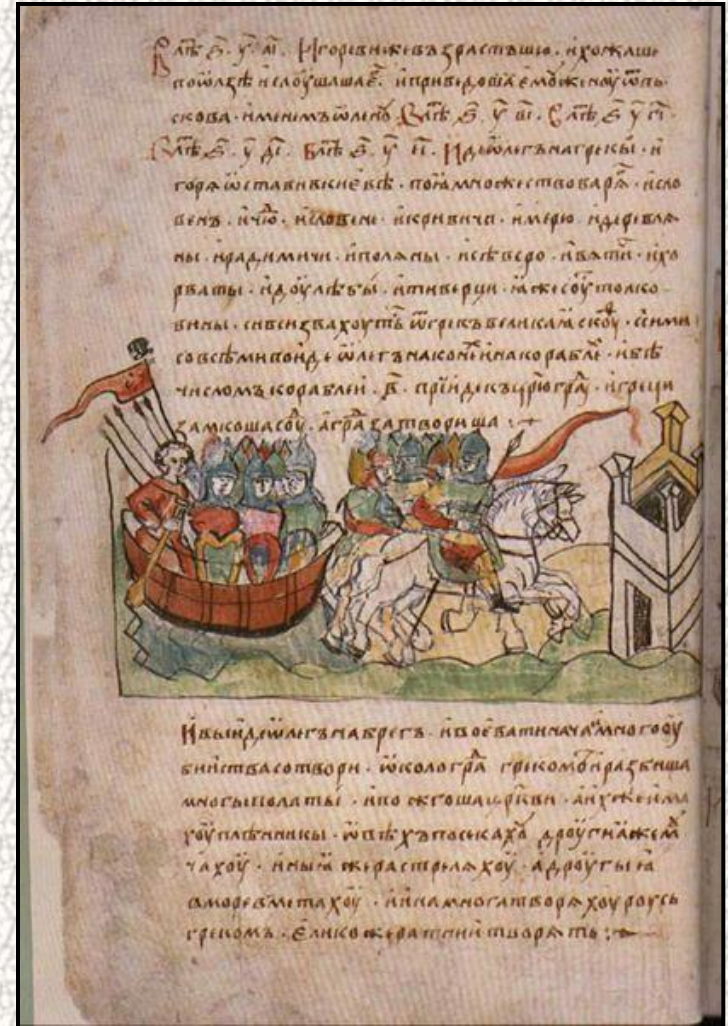 В лѣ҃т ҂ѕ҃. у҃. а҃і. Игореви же възрастъшю. и хожаше
по ѡлзѣ и слоушаше е҃. и приведоша ємоу женоу ѿ пь
скова. именемъ ѡлену В лѣ҃т. ҂ѕ҃. у҃ в҃і. В лѣ҃т. ҂ѕ҃ у҃ г҃і.
В лѣ҃т ҂ѕ҃. у҃ д҃і. В лѣ҃т ҂ѕ҃. у҃ е҃і. Иде ѡлегъ на грекы. и
горя ѡставив киеве. поя множество варѧ. и сло
венъ. и чю҃. и словене. и кривичи. и мерю. и деревлѧ
ны. и радимичи. и поляны. и сѣверо. и вѧти҃. и хо
рваты. и доулѣбы. и тиверци. ꙗже соуть толко
вины. си вси звахоуть ѿ грекъ великаꙗ скоу҃. с сими
со всѣми поиде ѡлегъ на коне҃ и на корабле҃. и бѣ
числомъ кораблеи. в҃. прїиде къ црⷭ҇юграⷣ. и греци
замкоша соу҃. а граⷣ затвориша
И выиде ѡлегъ на брегъ. и воевати нача. и много оу
бииства сотвори. ѡколо граⷣ грекомъ. и разбиша
многы полаты. и пожгоша църкви. а ихже има
хоу плѣнникы. ѡвѣхъ посекаху дроугиꙗ же мⷱ
чахоу. иныꙗ же растрелѧхоу. а дроугыꙗ
в море вметахоу. и ина многа творѧхоу роусь
грекомъ. елико же ратнии творѧть